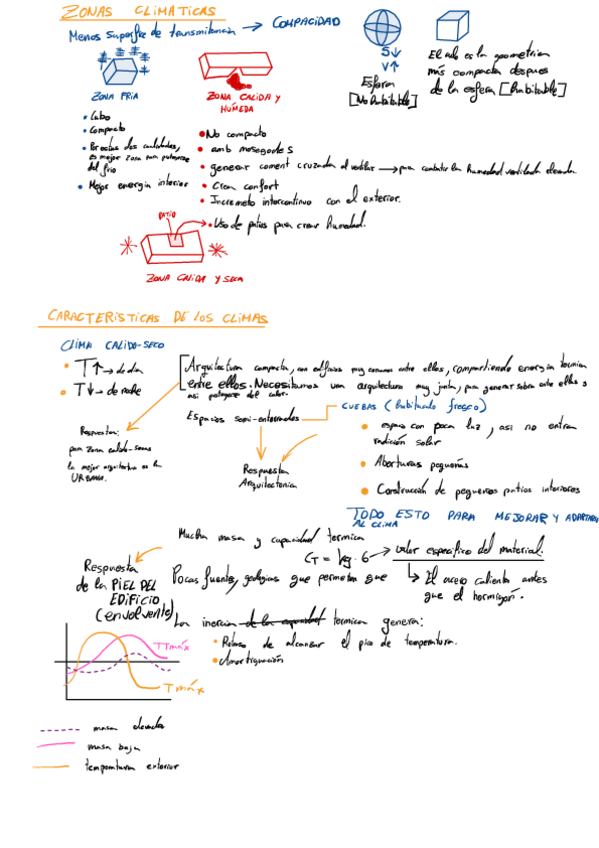 ZONAS CLIMATICAS
Menos superficie de transmitancia → COMPACIDAD
S↓
V↑
Esfera
[No habitable]
El cubo es la geometria
más compacta despues
de la esfera [habitable]
ZONA FRIA
• Cubo
• Compacto
del frio
• Mejor energia interior
ZONA CALIDA Y
HÚMEDA
• No compacto
• generar corrient cruzada al ventilar → para combatir la humedad ventilada elevada
• Crean confort
• Incremeto intercontinuo con el exterior.
PATIO
• Uso de patios para crear humedad.
ZONA CALIDA Y SECA
CARACTERISTICAS DE LOS CLIMAS
CLIMA CALIDO-SECO
• T↑ → de dia
• T↓ → de noche
Arquitectura compacta, con edificios muy cercanos entre ellos, compartiendo energia termica
entre ellos. Necesitamos una arquitectura muy junta, para generar sobra entre ellos y
asi protegerse del calor.
Respuesta:
para zona calido-secas
la mejor arquitectura es la
URBANA.
Espacios semi-enterrados
CUEBAS (habitando fresco)
• espacio con poca luz, asi no entra
radición solar
• Aberturas pequeñas
• Construcción de pequernos patios interiores
Respuesta
Arquitectonica
TODO ESTO PARA MEJORAR Y ADAPTAR
AL CLIMA
Mucha masa y capacidad termica
CT = kg · 6 → valor especifico del material.
↳ El acero calienta antes
que el hormigon.
Respuesta
de la PIEL DEL
EDIFICIO
(envolvente)
Pocas fuentes, geologias que permetan que
La inercia de la capacidad termica genera:
• Retraso de alcanzar el pico de temperatura.
• Amortiguación
TTmáx
Tmáx
masa elevada
masa baja
temperatura exterior